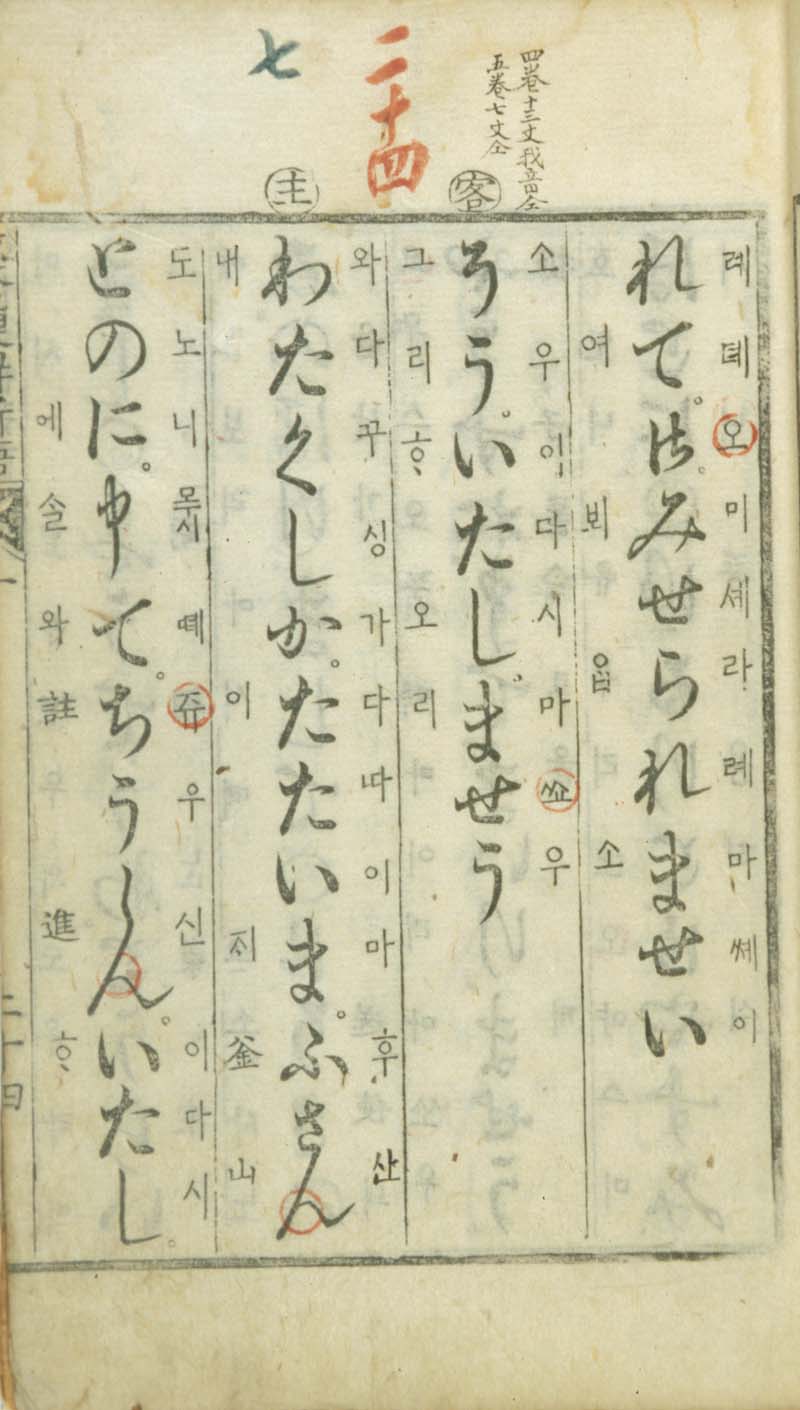 四卷十三丈我音仝
五卷七丈仝
客
二十四
主
七
례뎨오미셰라례마쎼이
れて。御。みせられませい
여뵈ᄋᆞᆸ소
소우이다시마쑈우
そう。いたし。ませう
그리ᄒᆞ오리
와다꾸싱가다따이마후산
わたくしか。たたいま。ふさん
내이지釜山
도노니목시뗴쥬우신이다시
とのに。申て。ちうしん。いたし。
에솔와註進ᄒᆞ